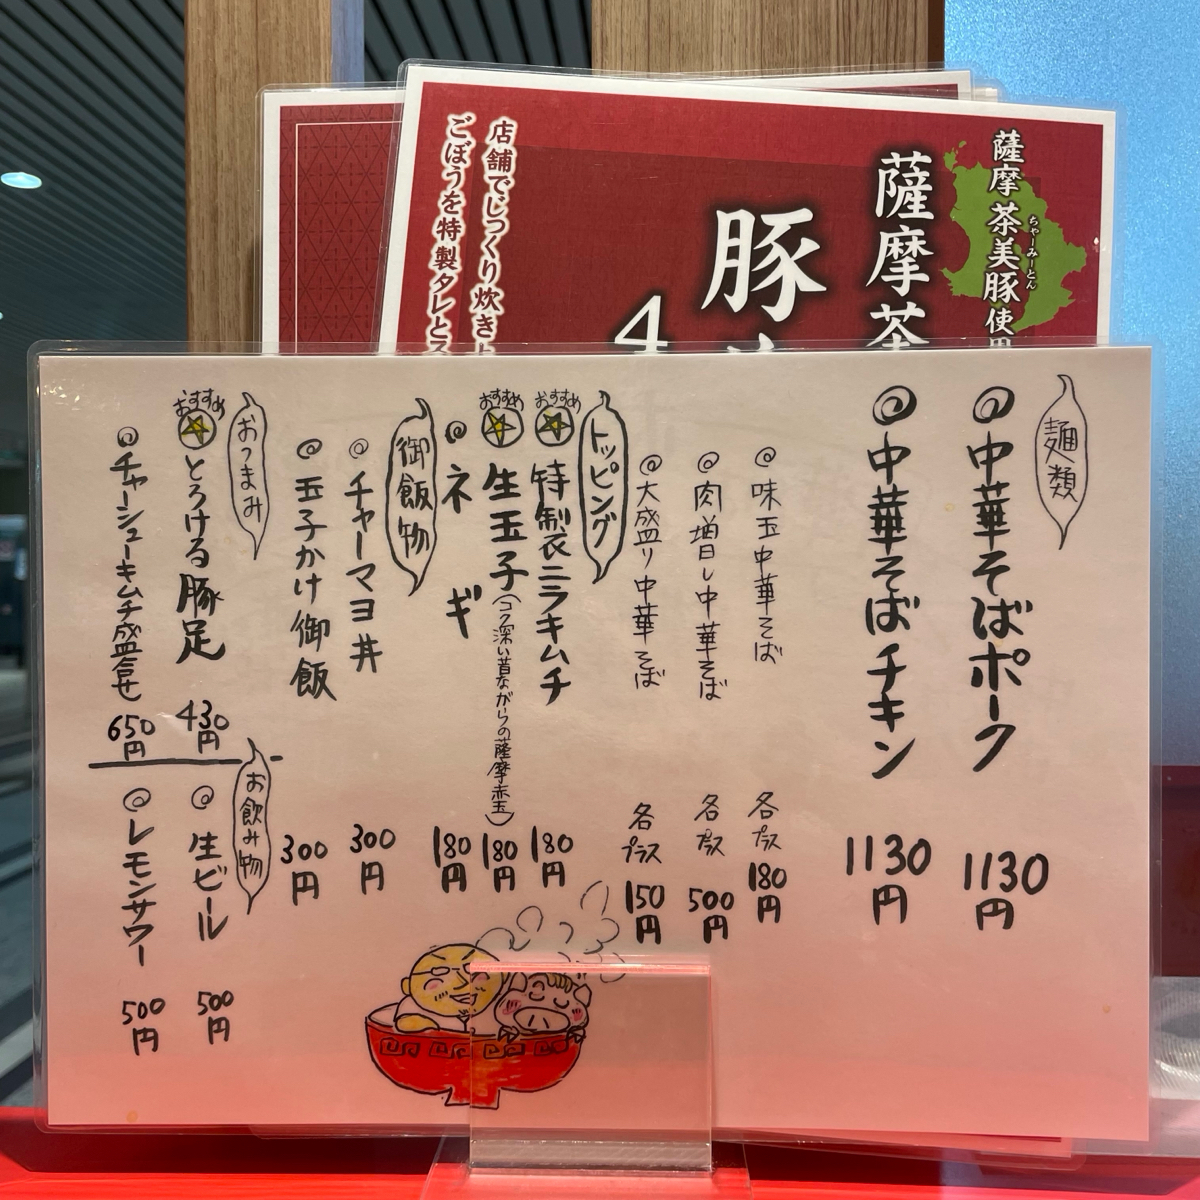 薩摩茶美豚使用
ちゃーみーとん
薩摩茶
豚
4
店舗でじっくり炊き
ごぼうを特製タレと
麺類
中華そばポーク
1130円
中華そばチキン
1130円
味玉中華そば
各プラス
180円
肉増し中華そば
各プラス
500円
大盛り中華そば
各プラス
150円
トッピング
おすすめ
特製ニラキムチ
180円
おすすめ
生玉子(コク深い昔ながらの薩摩赤玉)
180円
ネギ
180円
御飯物
チャーマヨ丼
300円
玉子かけ御飯
300円
おつまみ
おすすめ
とろける豚足
430円
チャーシューキムチ盛合せ
650円
お飲み物
生ビール
500円
レモンサワー
500円